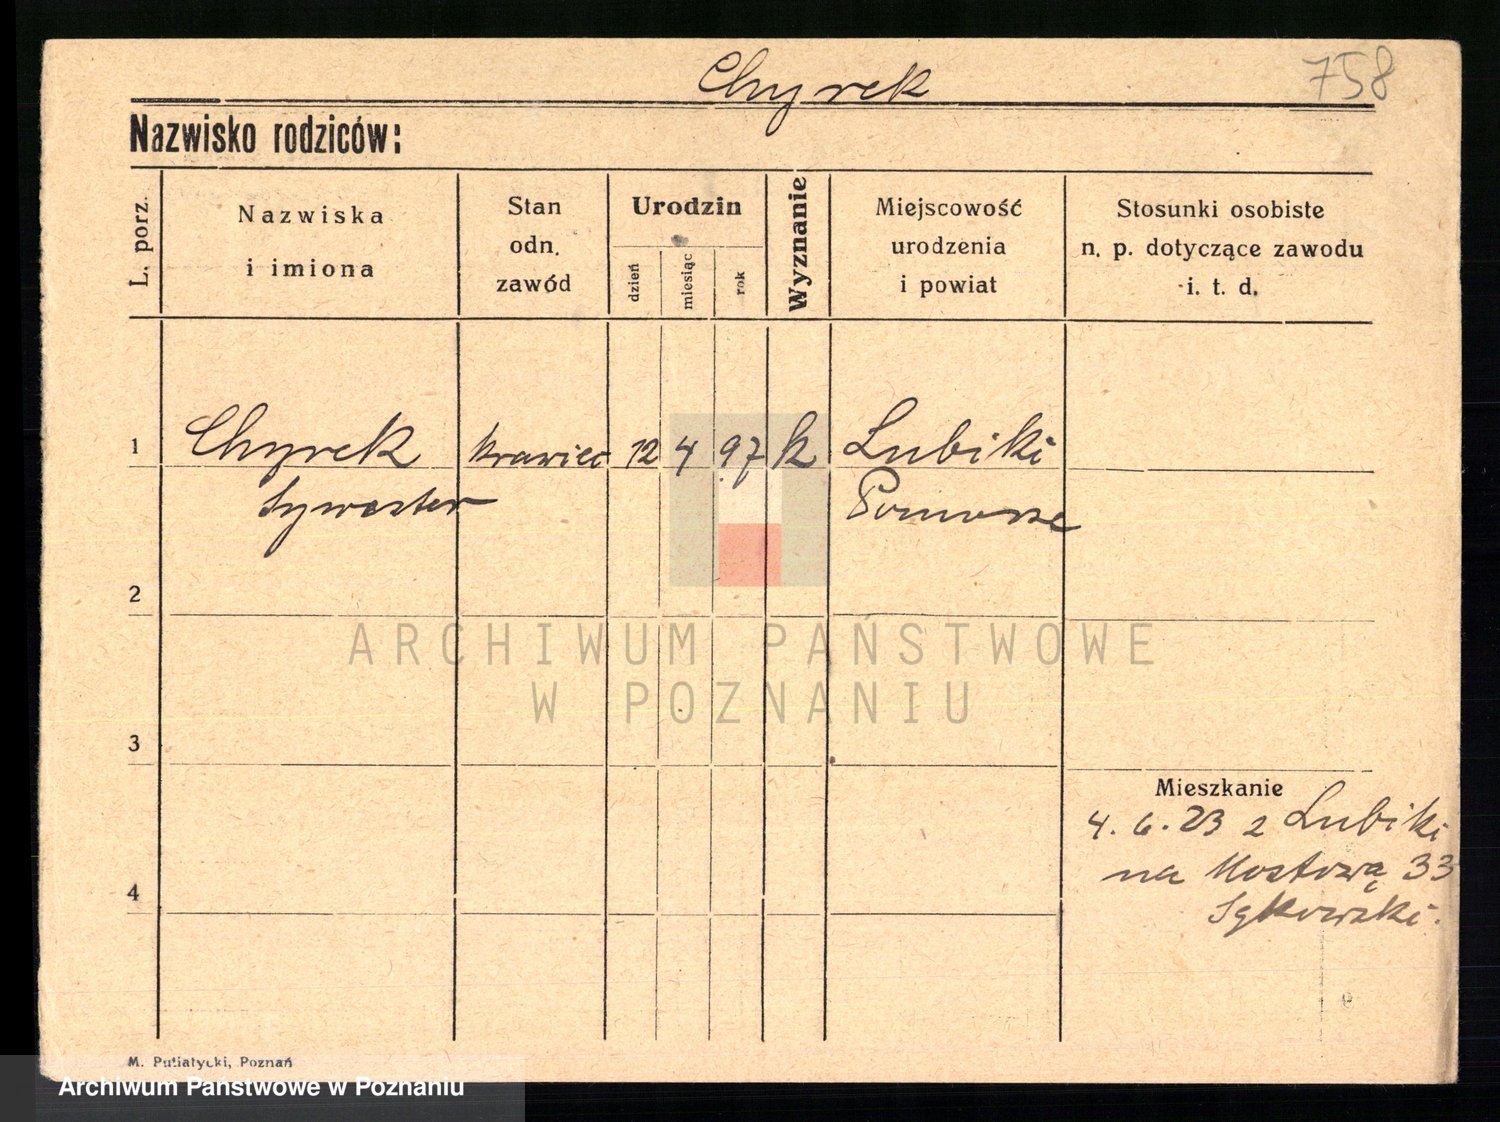 Chyrek
758
Nazwisko rodziców:
L. porz.
Nazwiska
i imiona
Stan
odn.
zawód
Urodzin
dzień
miesiąc
rok
Wyznanie
Miejscowość
urodzenia
i powiat
Stosunki osobiste
n. p. dotyczące zawodu
i. t. d.
1 Chyrek krawiec 12 4 97 k Lubiki
Sywester Pomorze
2
ARCHIWUM PAŃSTWOWE
W POZNANIU
3
Mieszkanie
4. 6. 23 z Lubiki
na Mostową 33
4
M. Putiatycki, Poznań
Archiwum Państwowe w Poznaniu